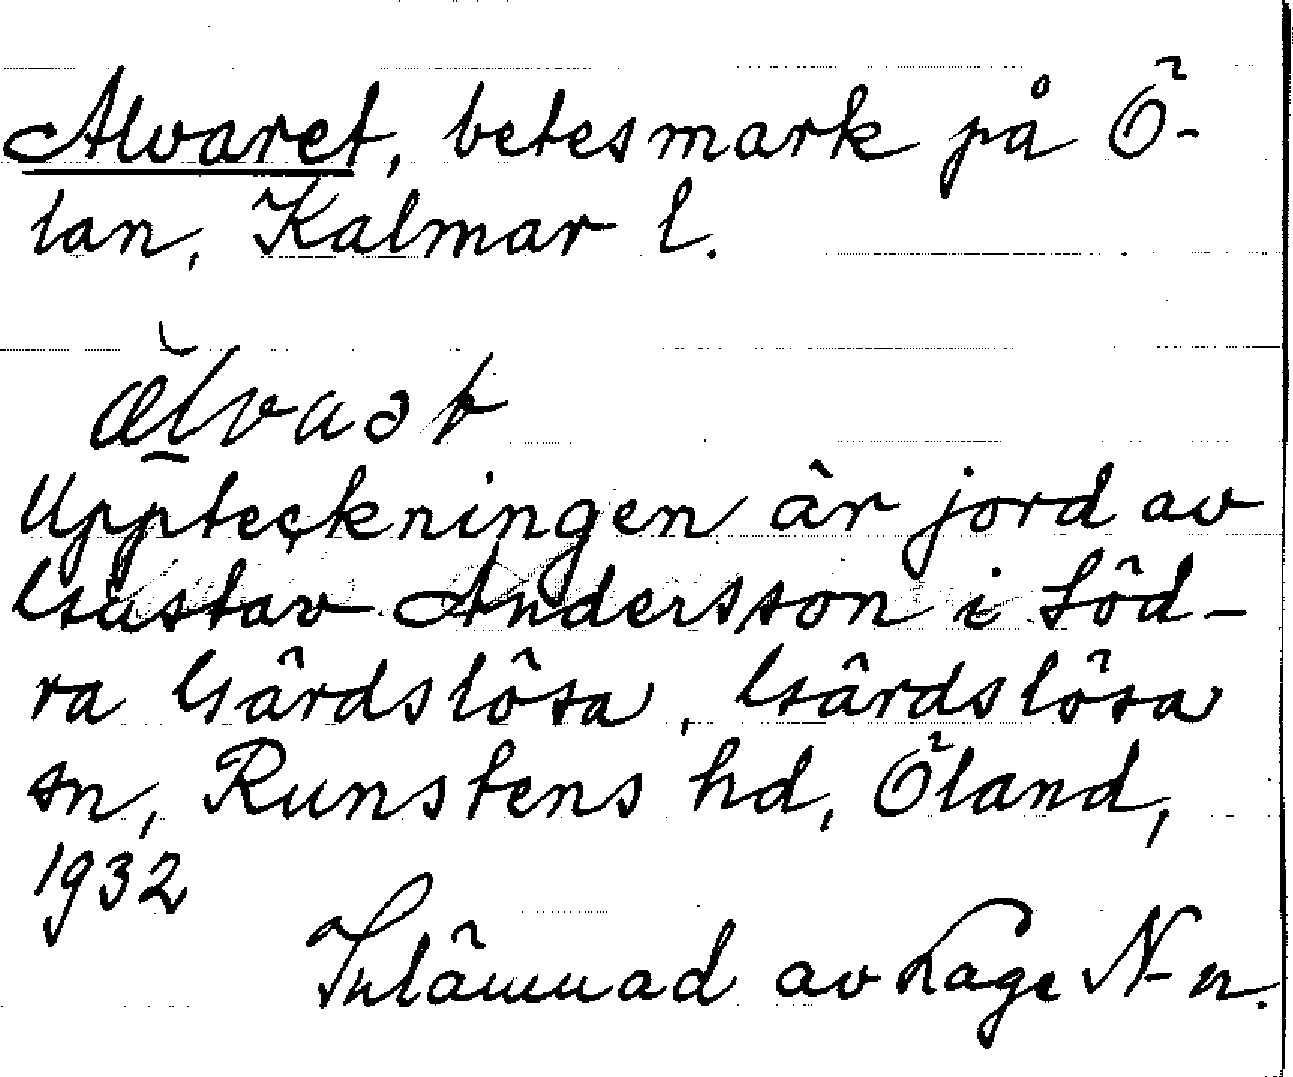 Alvaret, betesmark på Ö-
lan, Kalmar l.
älvaət
Uppteckningen är jord av
Gustav Andersson i Söd-
ra Gärdslösa, Gärdslösa
sn, Runstens hd, Öland,
1932
Inlämnad av Lage N-n.